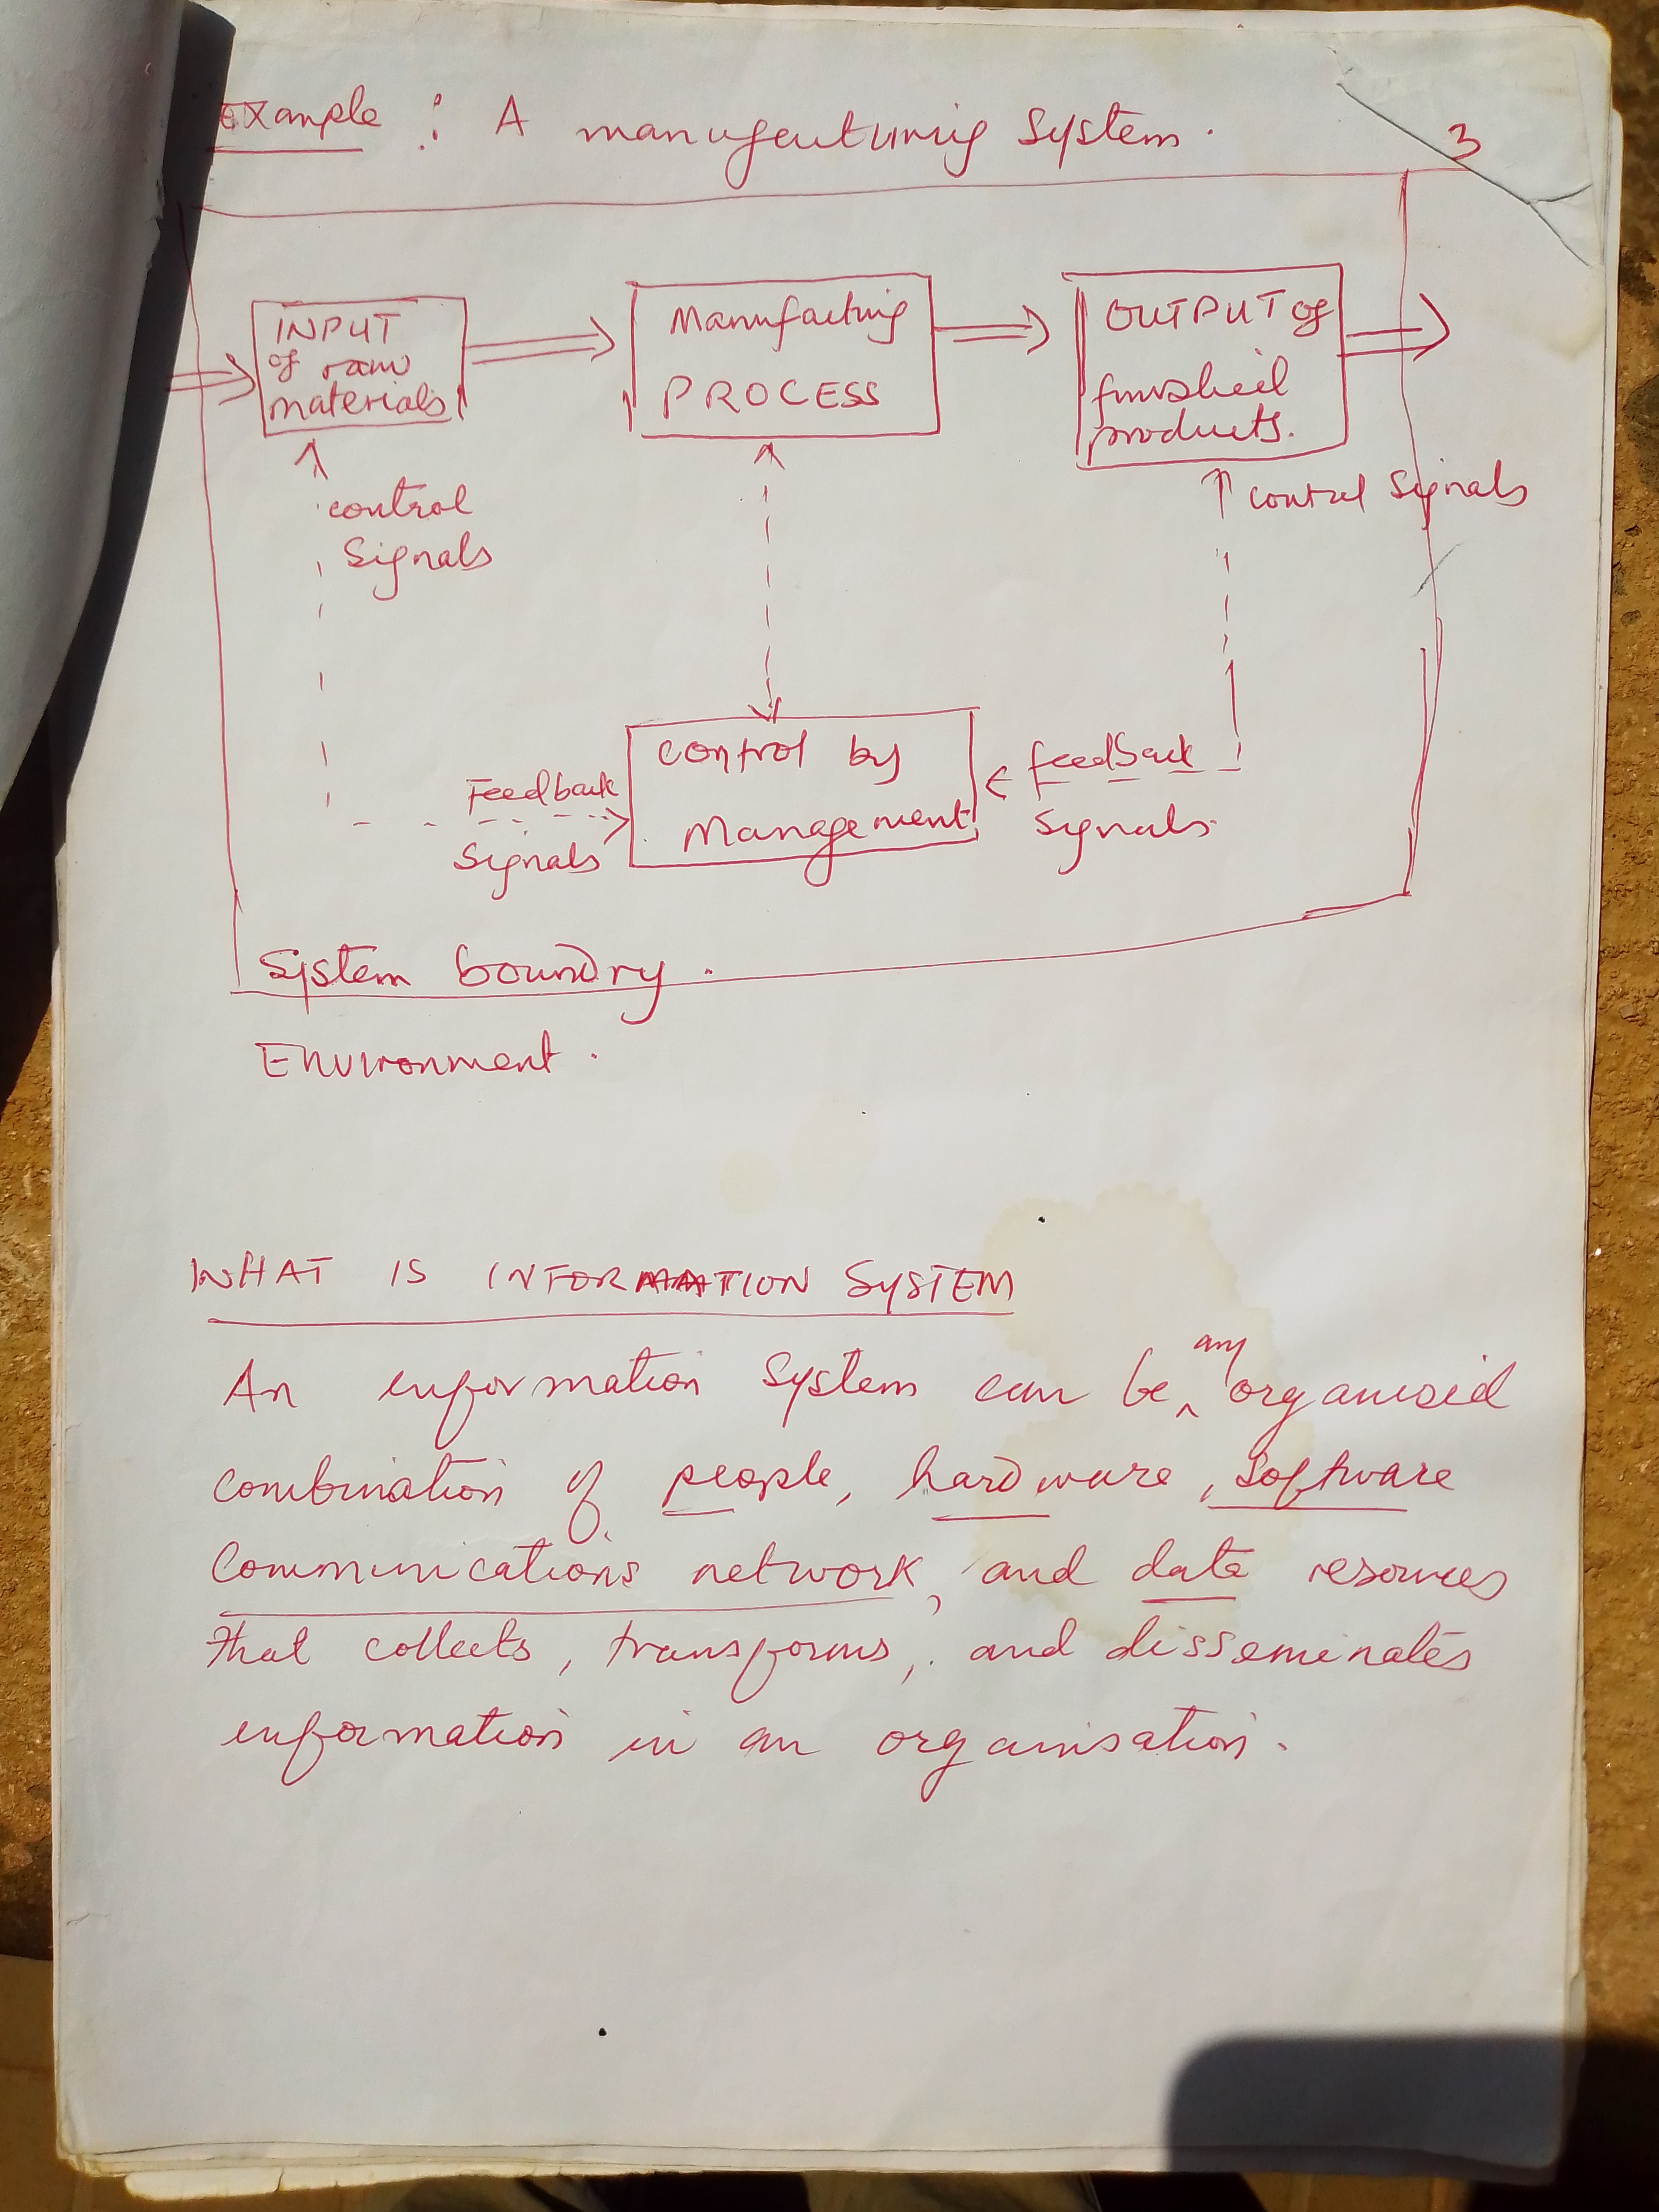 Example : A manufacturing System.
3
INPUT
of raw
materials
Manufacting
PROCESS
OUTPUT of
finished
products.
control
Signals
control Signals
Feedback
Signals
control by
Management
feedback
Signals.
System boundry.
Environment.
WHAT IS INFORMATION SYSTEM
An information System can be any organised
combination of people, hardware, software
Communications network, and data resources
that collects, transforms, and disseminates
information in an organisation.